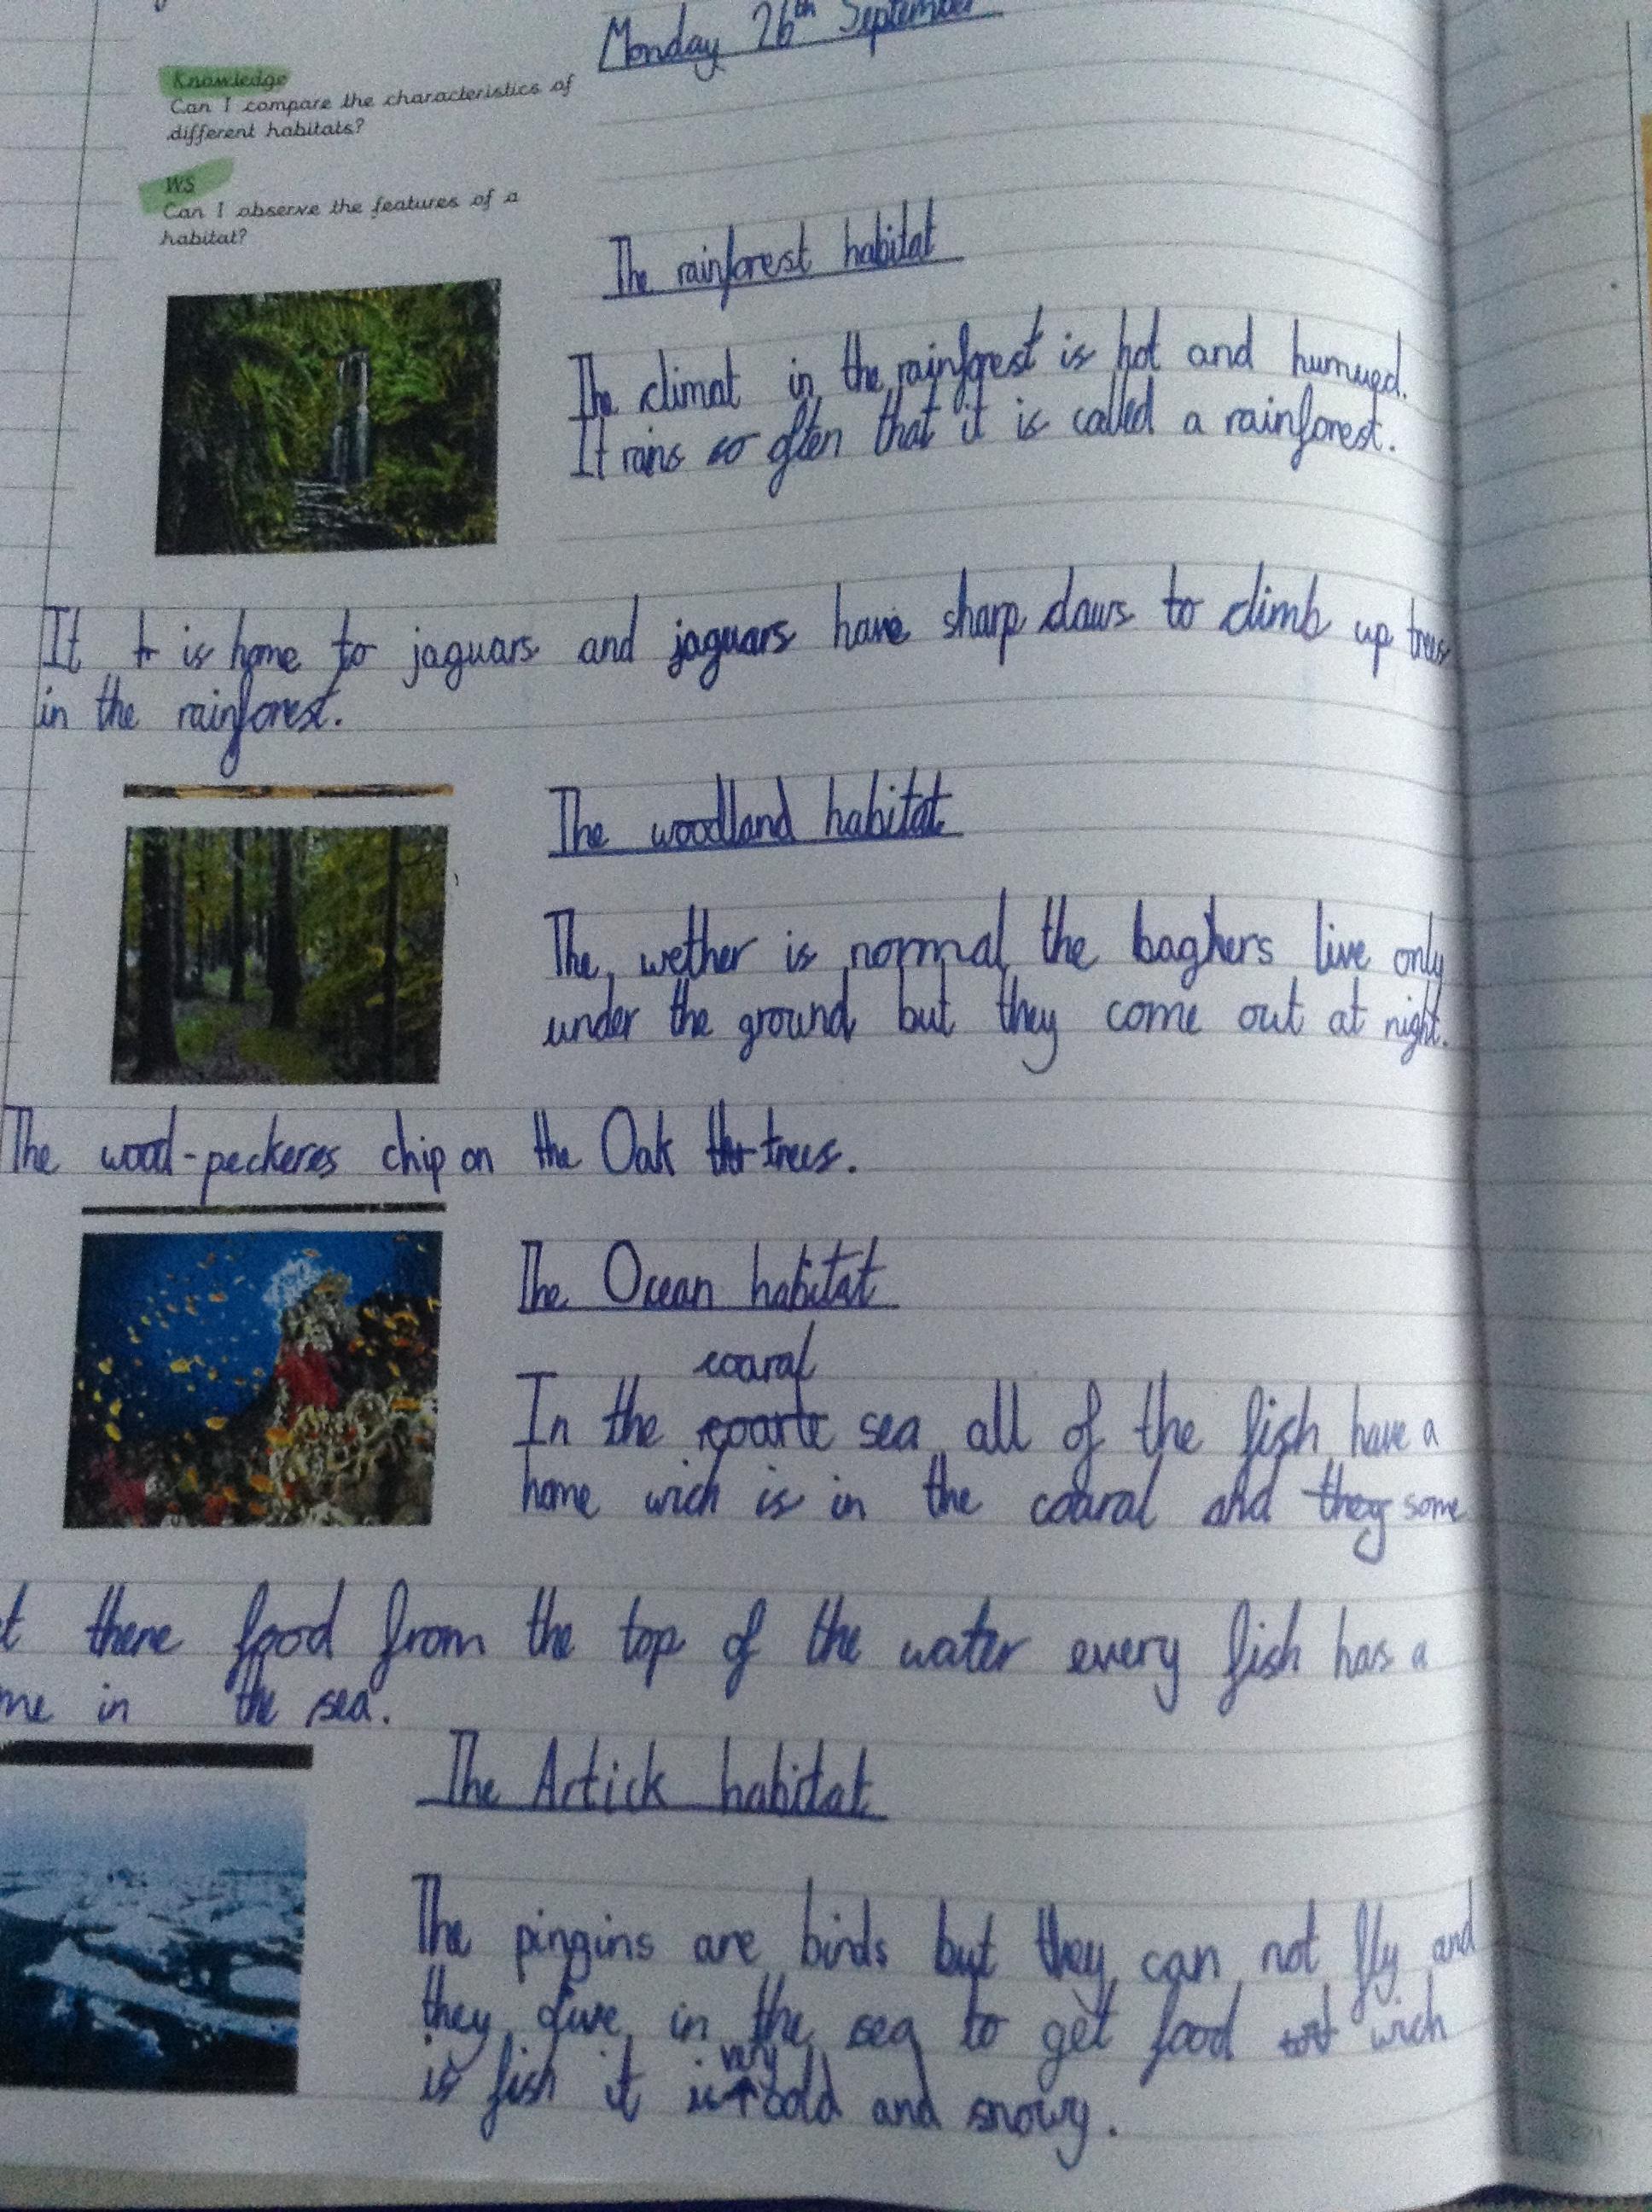 Monday 26th September
Knowledge
Can I compare the characteristics of
different habitats?
WS
Can I observe the features of a
habitat?
The rainforest habitat
The climat in the rainforest is hot and humued.
It rains so often that it is called a rainforest.
It is home to jaguars and jaguars have sharp claws to climb up trees
in the rainforest.
The woodland habitat
The wether is normal the baghers live only
under the ground but they come out at night.
The wood-peckeres chip on the Oak trees.
The Ocean habitat
coaral
In the sea all of the fish have a
home wich is in the coaral and they some
there food from the top of the water every fish has a
in the sea.
The Artick habitat
The pingins are birds but they can not fly and
they dive in the sea to get food wich
is fish it is very cold and snowy.